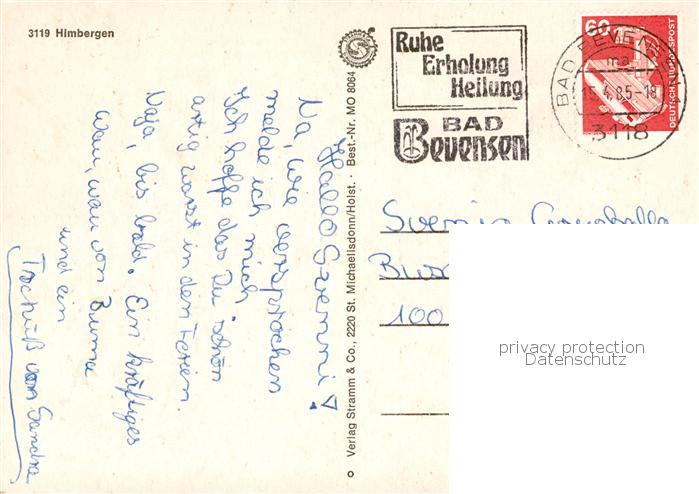 3119 Himbergen
Hallo Svenni!
Na, wie versprochen
melde ich mich
Ich hoffe das Du schön
artig warst in den Ferien.
Naja, bis bald. Ein kräftiges
Wau, wau von
und ein
Tschüß von Sandra
Verlag Stramm & Co., 2220 St. Michaelisdonn/Holst. · Best.-Nr. MO 8064
Ruhe
Erholung
Heilung
BAD
Bevensen
60
DEUTSCHE BUNDESPOST
BAD BEVENSEN
ma
15.4.85-18
3118
100
privacy protection
Datenschutz